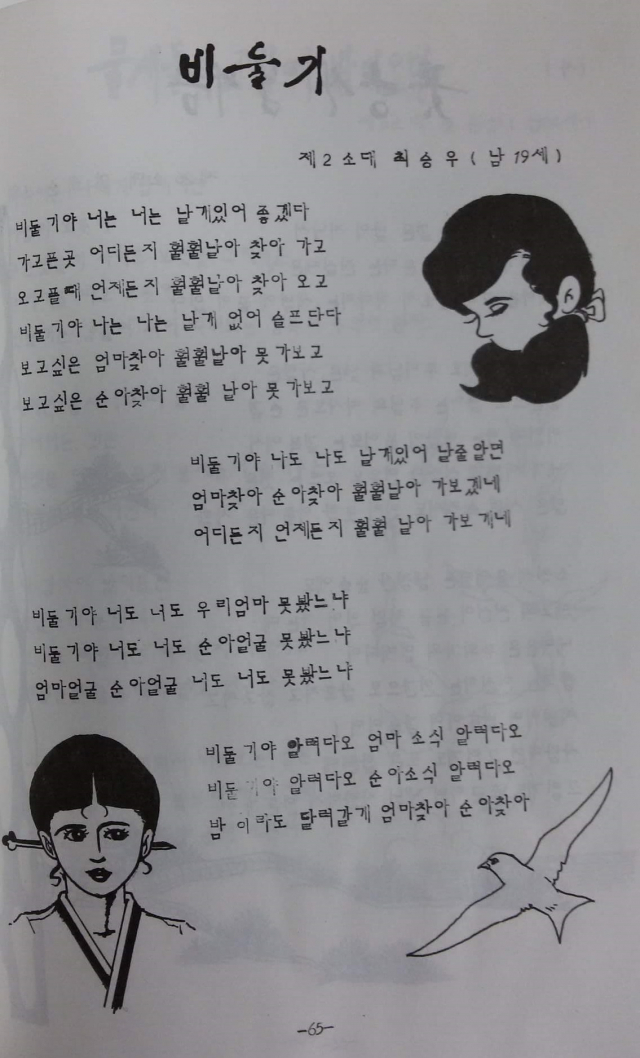 비둘기
제2소대 최승우 (남 19세)
비둘기야 너는 너는 날개있어 좋겠다
가고픈곳 어디든지 훨훨날아 찾아 가고
오고플때 언제든지 훨훨날아 찾아 오고
비둘기야 나는 나는 날개 없어 슬프단다
보고싶은 엄마찾아 훨훨날아 못가보고
보고싶은 순아찾아 훨훨 날아 못가보고
비둘기야 나도 나도 날개있어 날줄알면
엄마찾아 순아찾아 훨훨날아 가보겠네
어디든지 언제든지 훨훨 날아 가보게네
비둘기야 너도 너도 우리엄마 못봤느냐
비둘기야 너도 너도 순아얼굴 못봤느냐
엄마얼굴 순아얼굴 너도 너도 못봤느냐
비둘기야 알려다오 엄마 소식 알려다오
비둘기야 알려다오 순아소식 알려다오
밤 이라도 달려갈게 엄마찾아 순아찾아
-65-